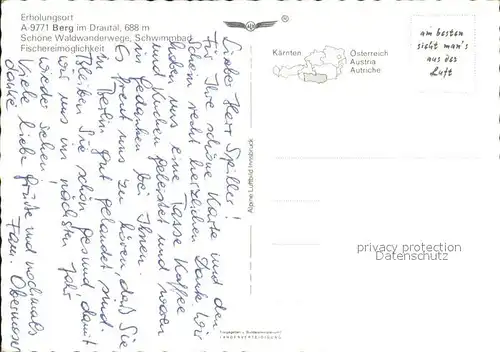 Erholungsort
A-9771 Berg im Drautal, 688 m
Schöne Waldwanderwege, Schwimmbad
Fischereimöglichkeit
Lieber Herr Spiller!
Für Ihre schöne Karte und den
schon recht herzlichen Dank. Wir
haben uns eine Tasse Kaffee
und Kuchen geleistet und waren
in Gedanken bei Ihnen.
Es freut uns zu hören, daß Sie
in Berlin gut gelandet sind.
Bleiben Sie schön gesund, damit
wir uns im nächsten Jahr
wieder sehen!
Viele liebe Grüße und nochmals
danke Fam.
Alpine Luftbild Innsbruck
Kärnten
Österreich
Austria
Autriche
am besten
sieht man's
aus der
Luft
privacy protection
Datenschutz